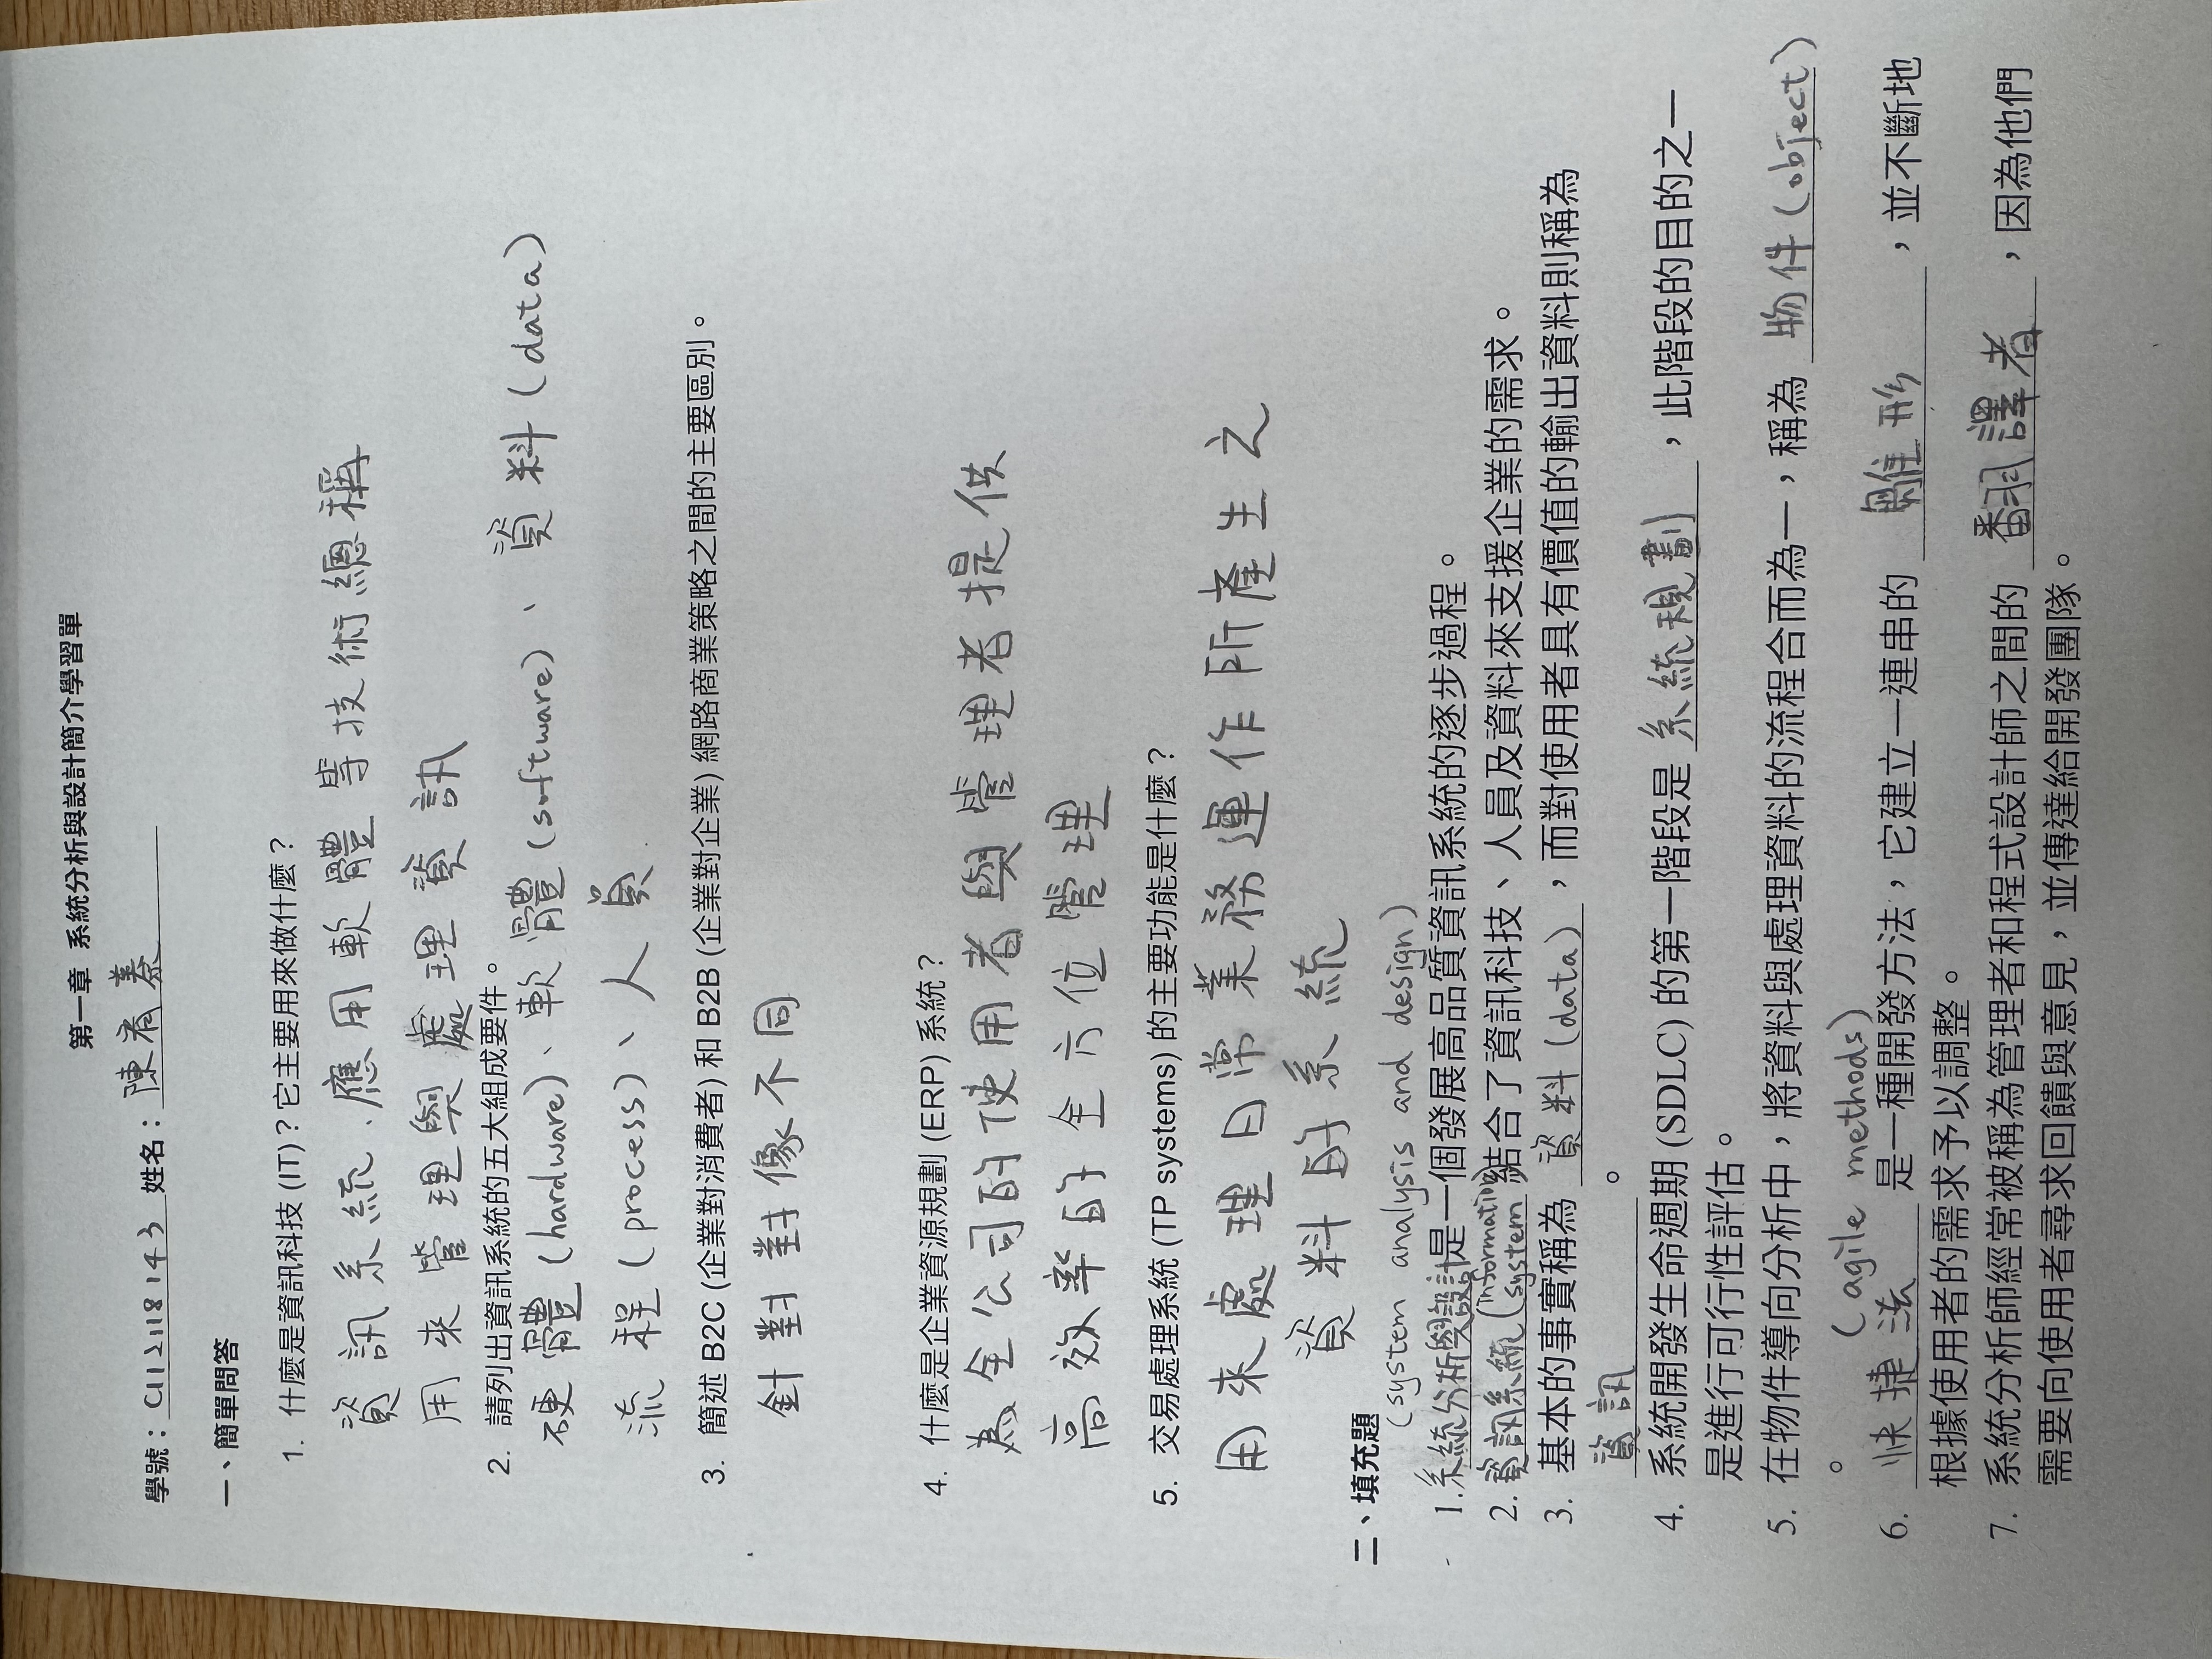 第一章 系統分析與設計簡介學習單
學號：C112118143 姓名：陳宥蓁
一、簡單問答
1. 什麼是資訊科技 (IT)？它主要用來做什麼？
資訊系統、應用軟體等技術總稱
用來管理與處理資訊
2. 請列出資訊系統的五大組成要件。
硬體(hardware)、軟體(software)、資料(data)
流程(process)、人員.
3. 簡述 B2C (企業對消費者) 和 B2B (企業對企業) 網路商業策略之間的主要區別。
針對對像不同
4. 什麼是企業資源規劃 (ERP) 系統？
為全公司的使用者與管理者提供
高效率的全方位管理
5. 交易處理系統 (TP systems) 的主要功能是什麼？
用來處理日常業務運作所產生之
資料的系統
二、填充題
(system analysis and design)
1. 系統分析與設計是一個發展高品質資訊系統的逐步過程。
2. 資訊系統(information system)結合了資訊科技、人員及資料來支援企業的需求。
3. 基本的事實稱為 資料(data)，而對使用者具有價值的輸出資料則稱為
資訊。
4. 系統開發生命週期 (SDLC) 的第一階段是 系統規劃，此階段的目的之一
是進行可行性評估。
5. 在物件導向分析中，將資料與處理資料的流程合而為一，稱為 物件(object)
。 (agile methods)
6. 快捷法 是一種開發方法，它建立一連串的 雛形，並不斷地
根據使用者的需求予以調整。
7. 系統分析師經常被稱為管理者和程式設計師之間的 翻譯者，因為他們
需要向使用者尋求回饋與意見，並傳達給開發團隊。